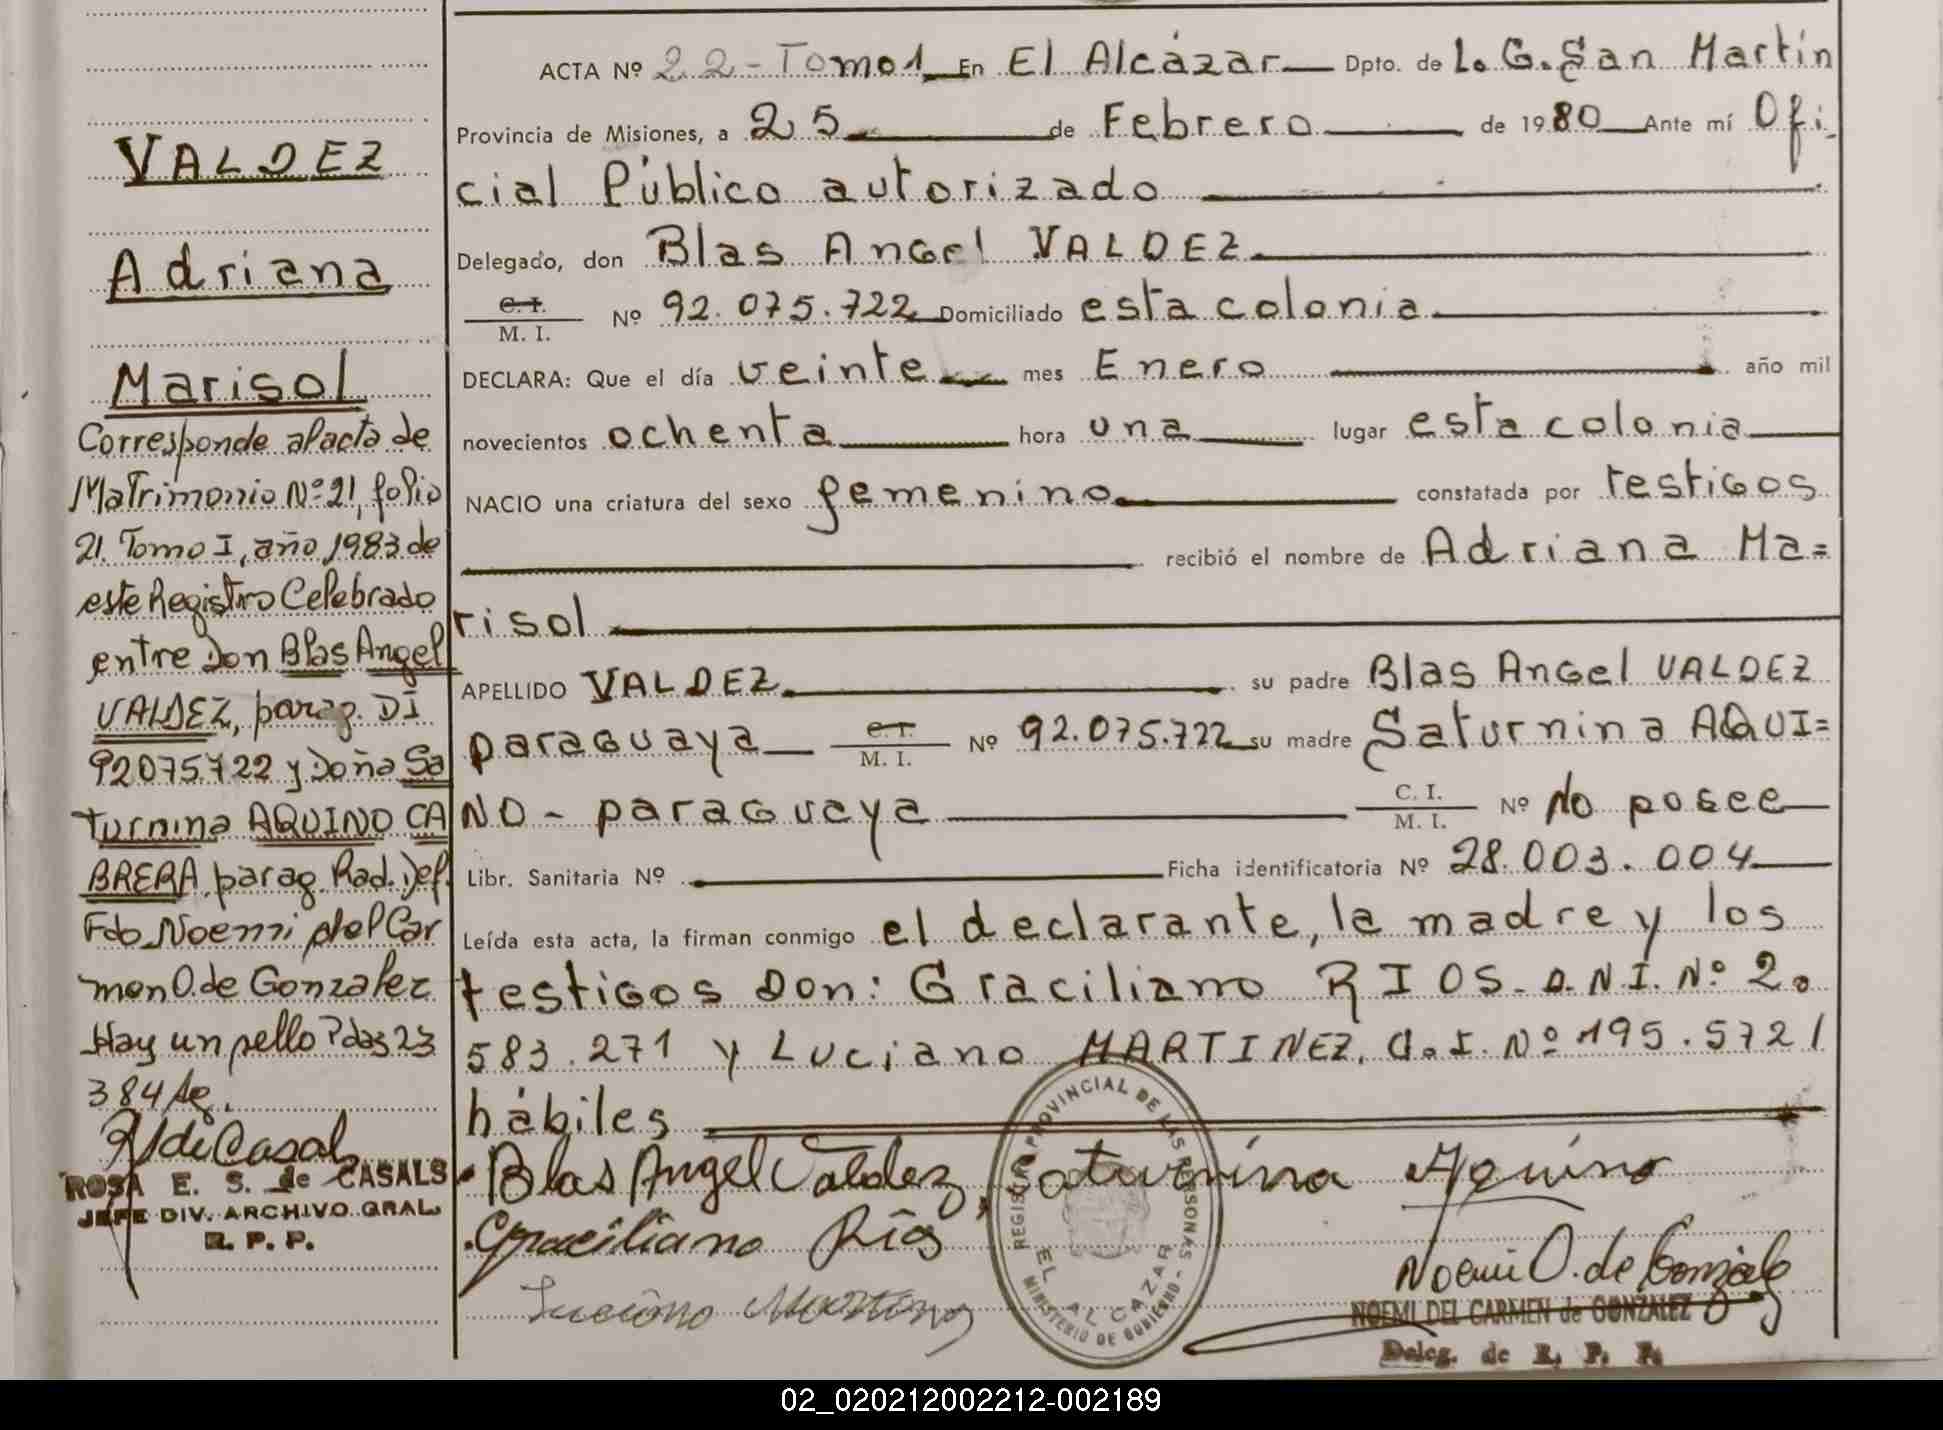 VALDEZ
Adriana
Marisol
Corresponde al acta de
Matrimonio Nº 21, folio
21. Tomo I, año 1983 de
este Registro Celebrado
entre Don Blas Angel
VALDEZ, parag. DI
92075722 y Doña Sa
turnina AQUINO CA
BRERA, parag. Rad. Def.
Fdo Noemi del Car
men O. de Gonzalez
Hay un sello Pdas 23
384 Ae.
R de Casals
ROSA E. S. de CASALS
JEFE DIV. ARCHIVO GRAL.
R. P. P.
ACTA Nº 22 - Tomo 1 En El Alcázar Dpto. de L. G. San Martín
Provincia de Misiones, a 25 de Febrero de 1980 Ante mí Ofi-
cial Público autorizado
Delegado, don Blas Angel VALDEZ
C. I.
M. I. Nº 92.075.722 Domiciliado esta colonia
DECLARA: Que el día veinte mes Enero año mil
novecientos ochenta hora una lugar esta colonia
NACIO una criatura del sexo femenino constatada por testigos
recibió el nombre de Adriana Ma=
risol
APELLIDO VALDEZ su padre Blas Angel VALDEZ
paraguaya C. I. M. I. Nº 92.075.722 su madre Saturnina AQUI=
NO - paraguaya C. I. M. I. Nº No posee
Libr. Sanitaria Nº Ficha identificatoria Nº 28.003.004
Leída esta acta, la firman conmigo el declarante, la madre y los
testigos Don: Graciliano RIOS - D.N.I. Nº 2.
583.271 y Luciano MARTINEZ, C.I. Nº 195.572 /
hábiles
Blas Angel Valdez, Saturnina Aquino
Graciliano Ríos
Luciano Martinez
REGISTRO PROVINCIAL DE LAS PERSONAS
EL ALCAZAR
MINISTERIO DE GOBIERNO
Noemi O. de Gonzalez
NOEMI DEL CARMEN de GONZALEZ
Deleg. de R. P. P.
02_020212002212-002189